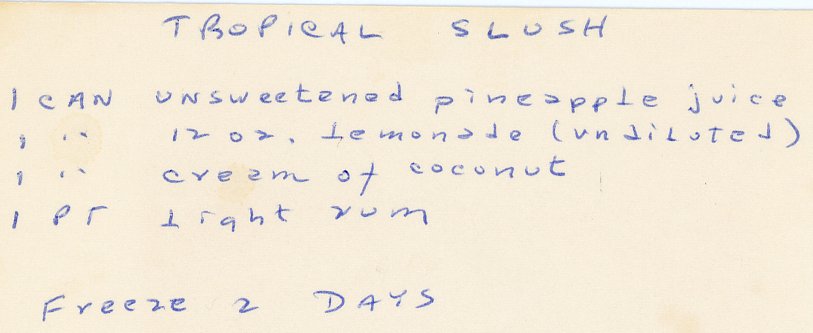 TROPICAL SLUSH
1 CAN unsweetened pineapple juice
1 " 12 oz. lemonade (undiluted)
1 " cream of coconut
1 PT light rum
Freeze 2 DAYS